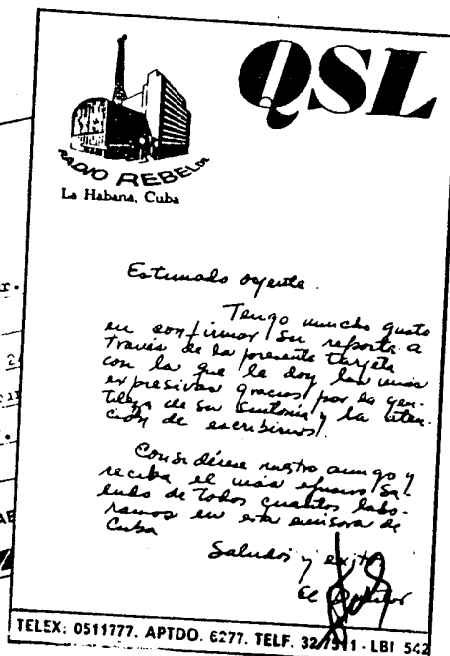 QSL
RADIO REBELDE
La Habana, Cuba
Estimado oyente.
Tengo mucho gusto
en confirmar su reporte a
través de la presente tarjeta
con la que le doy las más
expresivas gracias por la gen-
tileza de su sintonía y la aten-
ción de escribirnos.
Considérese nuestro amigo y
reciba el más efusivo sa-
ludo de todos cuantos labo-
ramos en esta emisora de
Cuba
Saludos y exitos
El
TELEX: 0511777. APTDO. 6277. TELF. 32/7511 - LBI 542